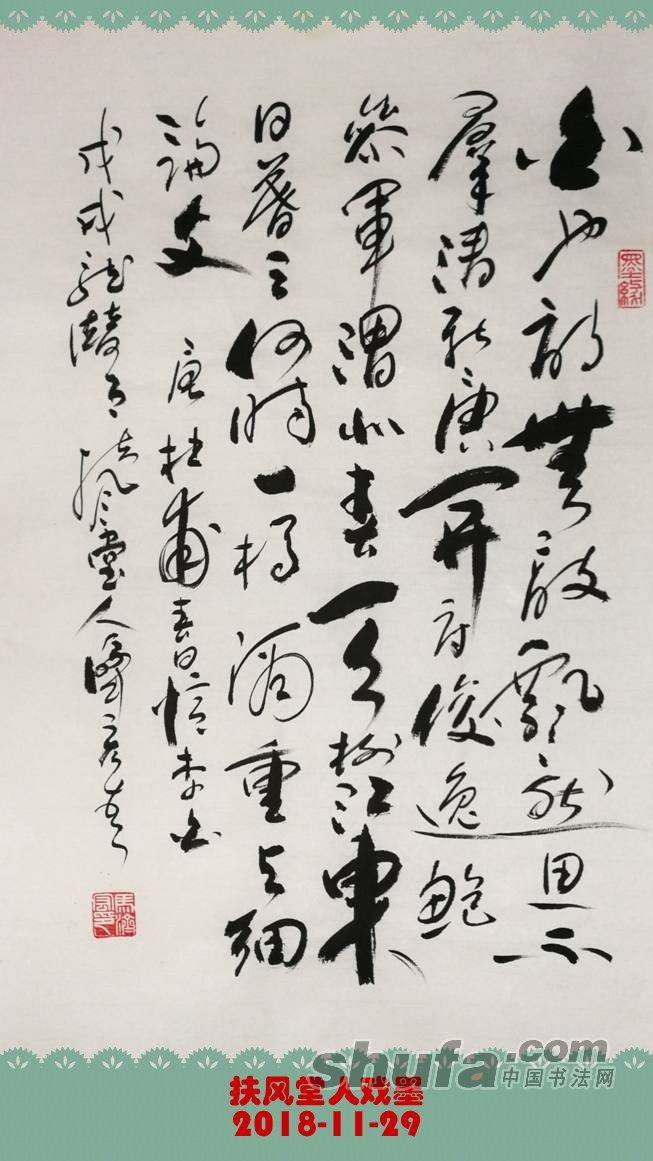 白也詩無敌飘然思不
羣清新庾開府俊逸鲍
参軍渭北春天树江東
日暮云何時一樽酒重与细
論文 唐杜甫春日憶李白
戊戌龍潜月扶風堂人
墨缘
shufa.com
中国书法网
扶风堂人戏墨
2018-11-29